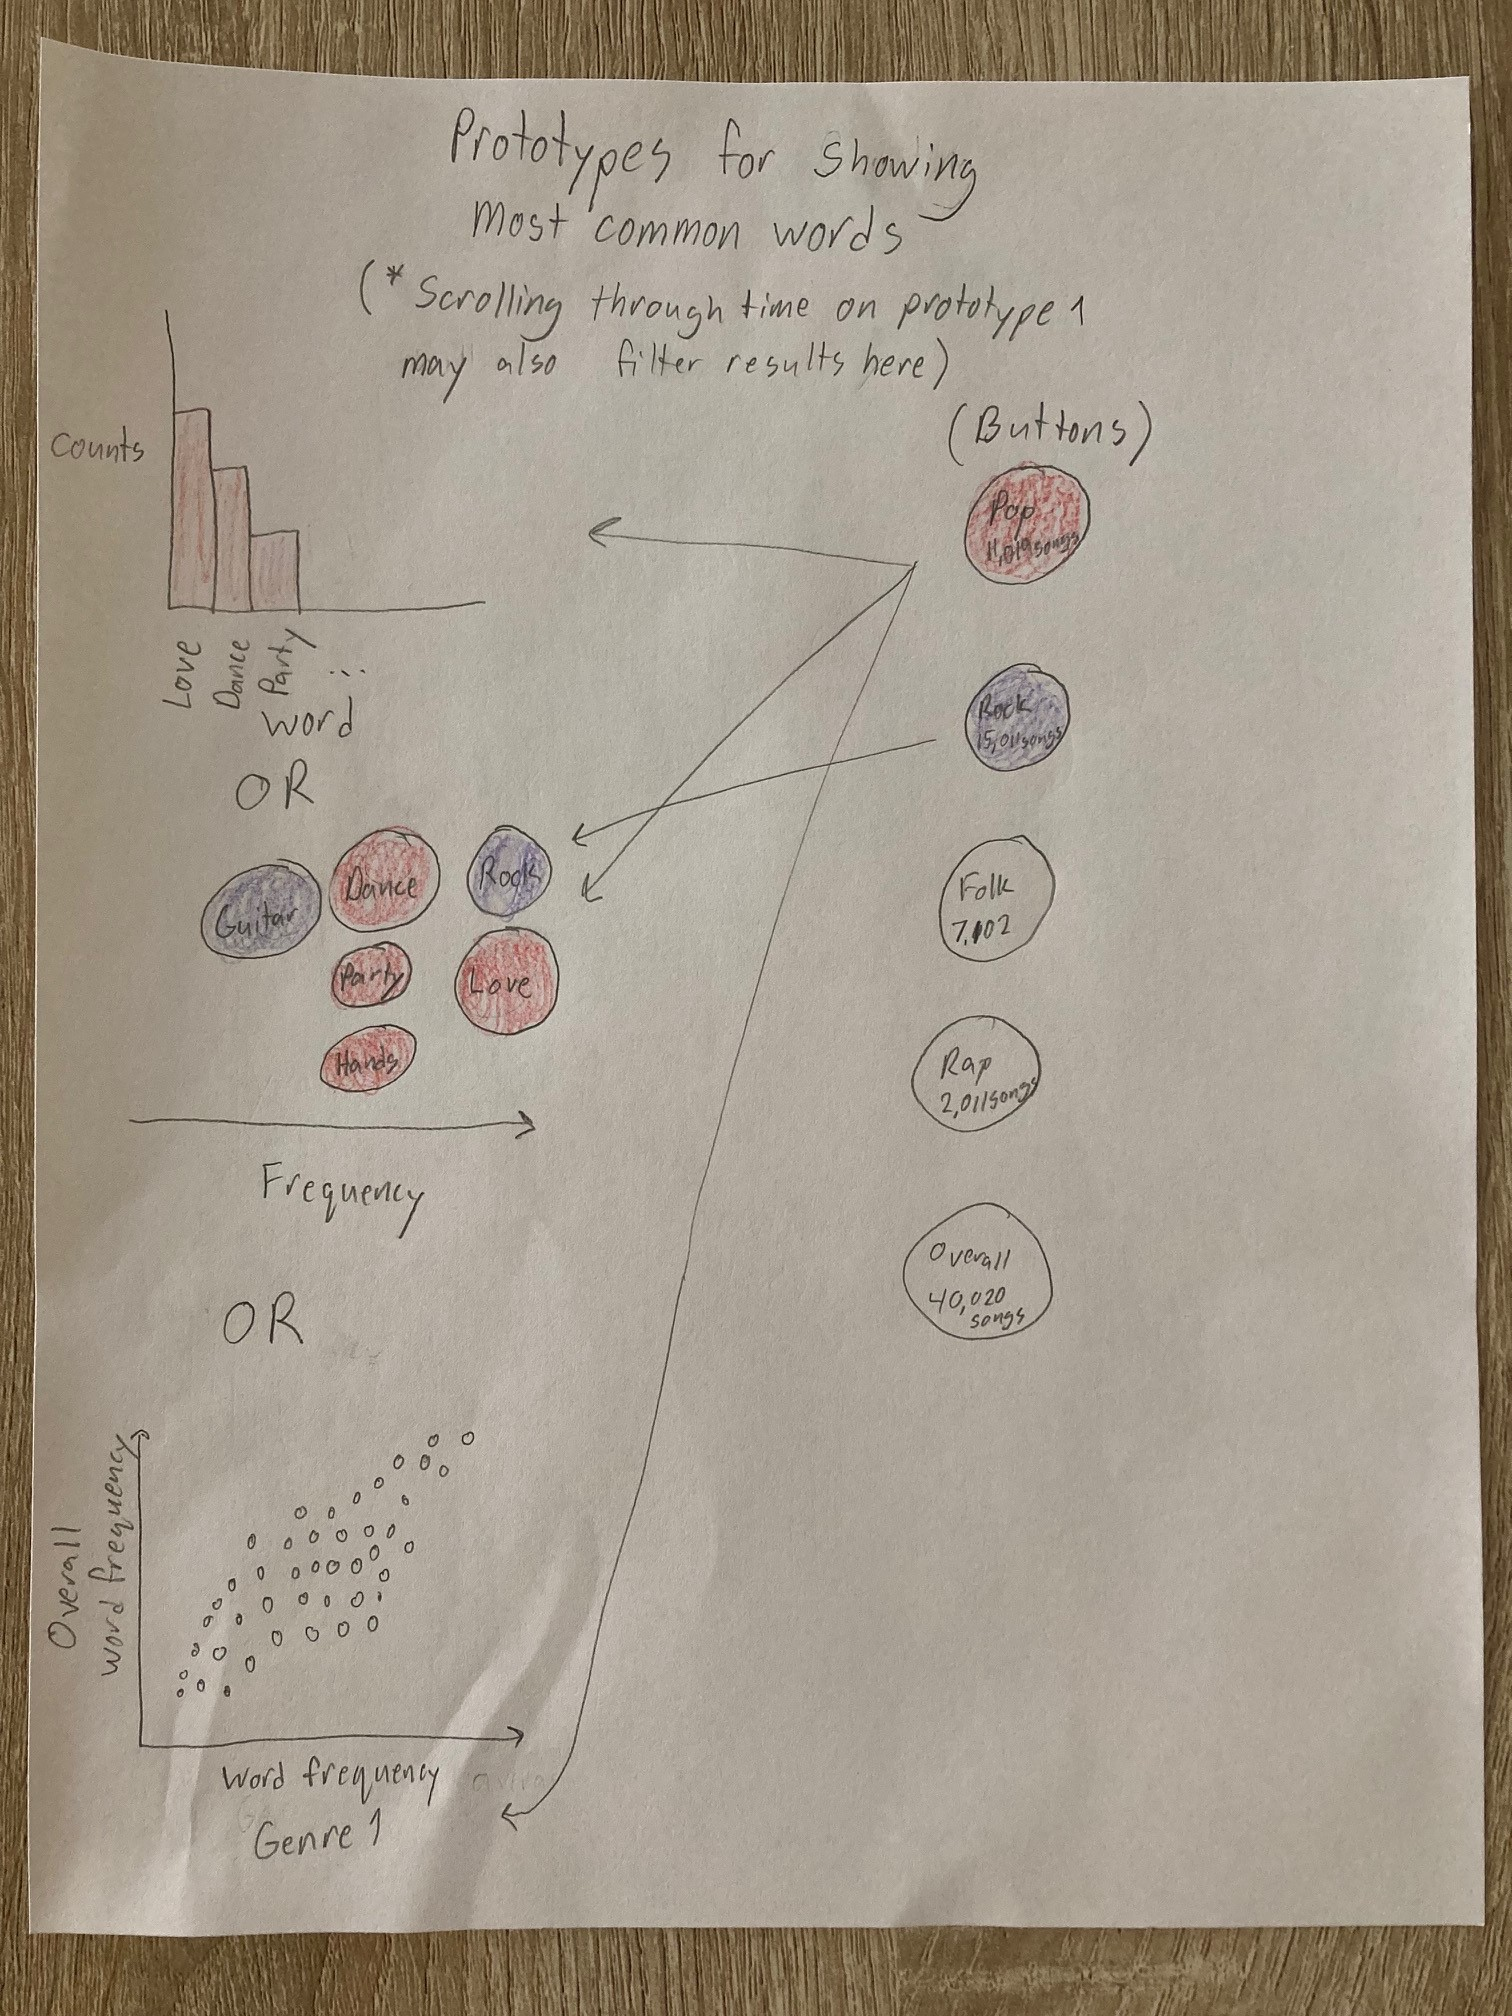 Prototypes for showing
most common words
(* Scrolling through time on prototype 1
may also filter results here)
Counts
Love
Dance
Party
...
word
OR
Guitar
Dance
Rock
Party
Love
Hands
Frequency
OR
Overall
word frequency
word frequency
Genre 1
(Buttons)
Pop
11,019 songs
Rock
15,011 songs
Folk
7,102
Rap
2,011 songs
Overall
40,020
songs